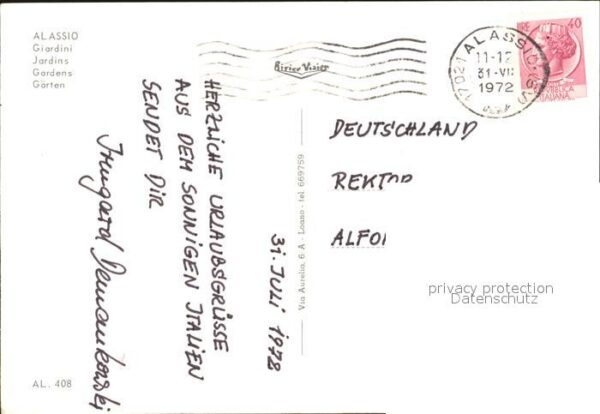 ALASSIO
Giardini
Jardins
Gardens
Gärten
HERZLICHE URLAUBSGRÜSSE
AUS DEM SONNIGEN ITALIEN
SENDET DIR
Irmgard Demankowski
31. JULI 1972
AL. 408
Via Aurelia, 6 A - Loano - tel. 669759
17021 ALASSIO (SV)
11-12
31-VII
1972
40
DEUTSCHLAND
REKTOR
ALFO
privacy protection
Datenschutz